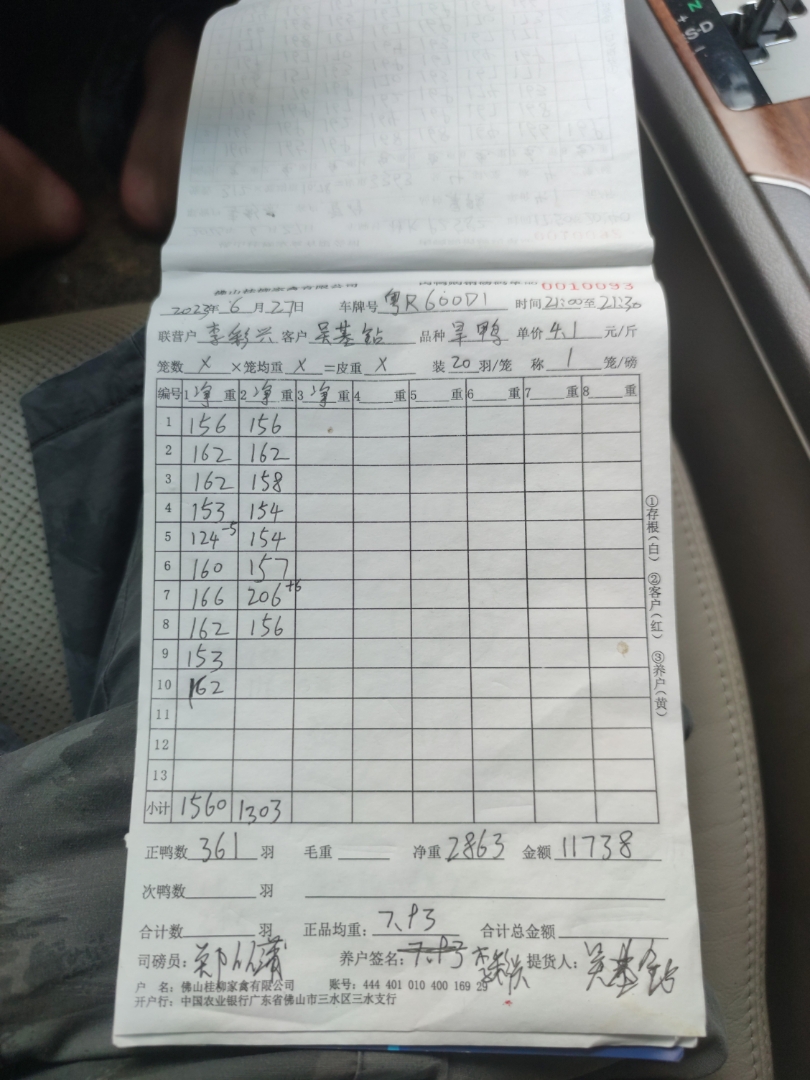 佛山桂柳家禽有限公司 0010093
2023年6月27日 车牌号 粤R600D1 时间21:00至21:30
联营户 李彩兴 客户 吴基钻 品种 旱鸭 单价 4.1 元/斤
笼数 X ×笼均重 X =皮重 X 装 20 羽/笼 称 1 笼/磅
编号 1 净 重 2 净 重 3 净 重 4 重 5 重 6 重 7 重 8 重
1 156 156
2 162 162
3 162 158
4 153 154
5 124 -5 154
6 160 157
7 166 206 +6
8 162 156
9 153
10 162
11
12
13
小计 1560 1303
①存根(白) ②客户(红) ③养户(黄)
正鸭数 361 羽 毛重 净重 2863 金额 11738
次鸭数 羽
合计数 羽 正品均重: 7.93 合计总金额
司磅员: 养户签名: 7.93 李彩兴 提货人: 吴基钻
户 名: 佛山桂柳家禽有限公司 账号: 444 401 010 400 169 29
开户行: 中国农业银行广东省佛山市三水区三水支行